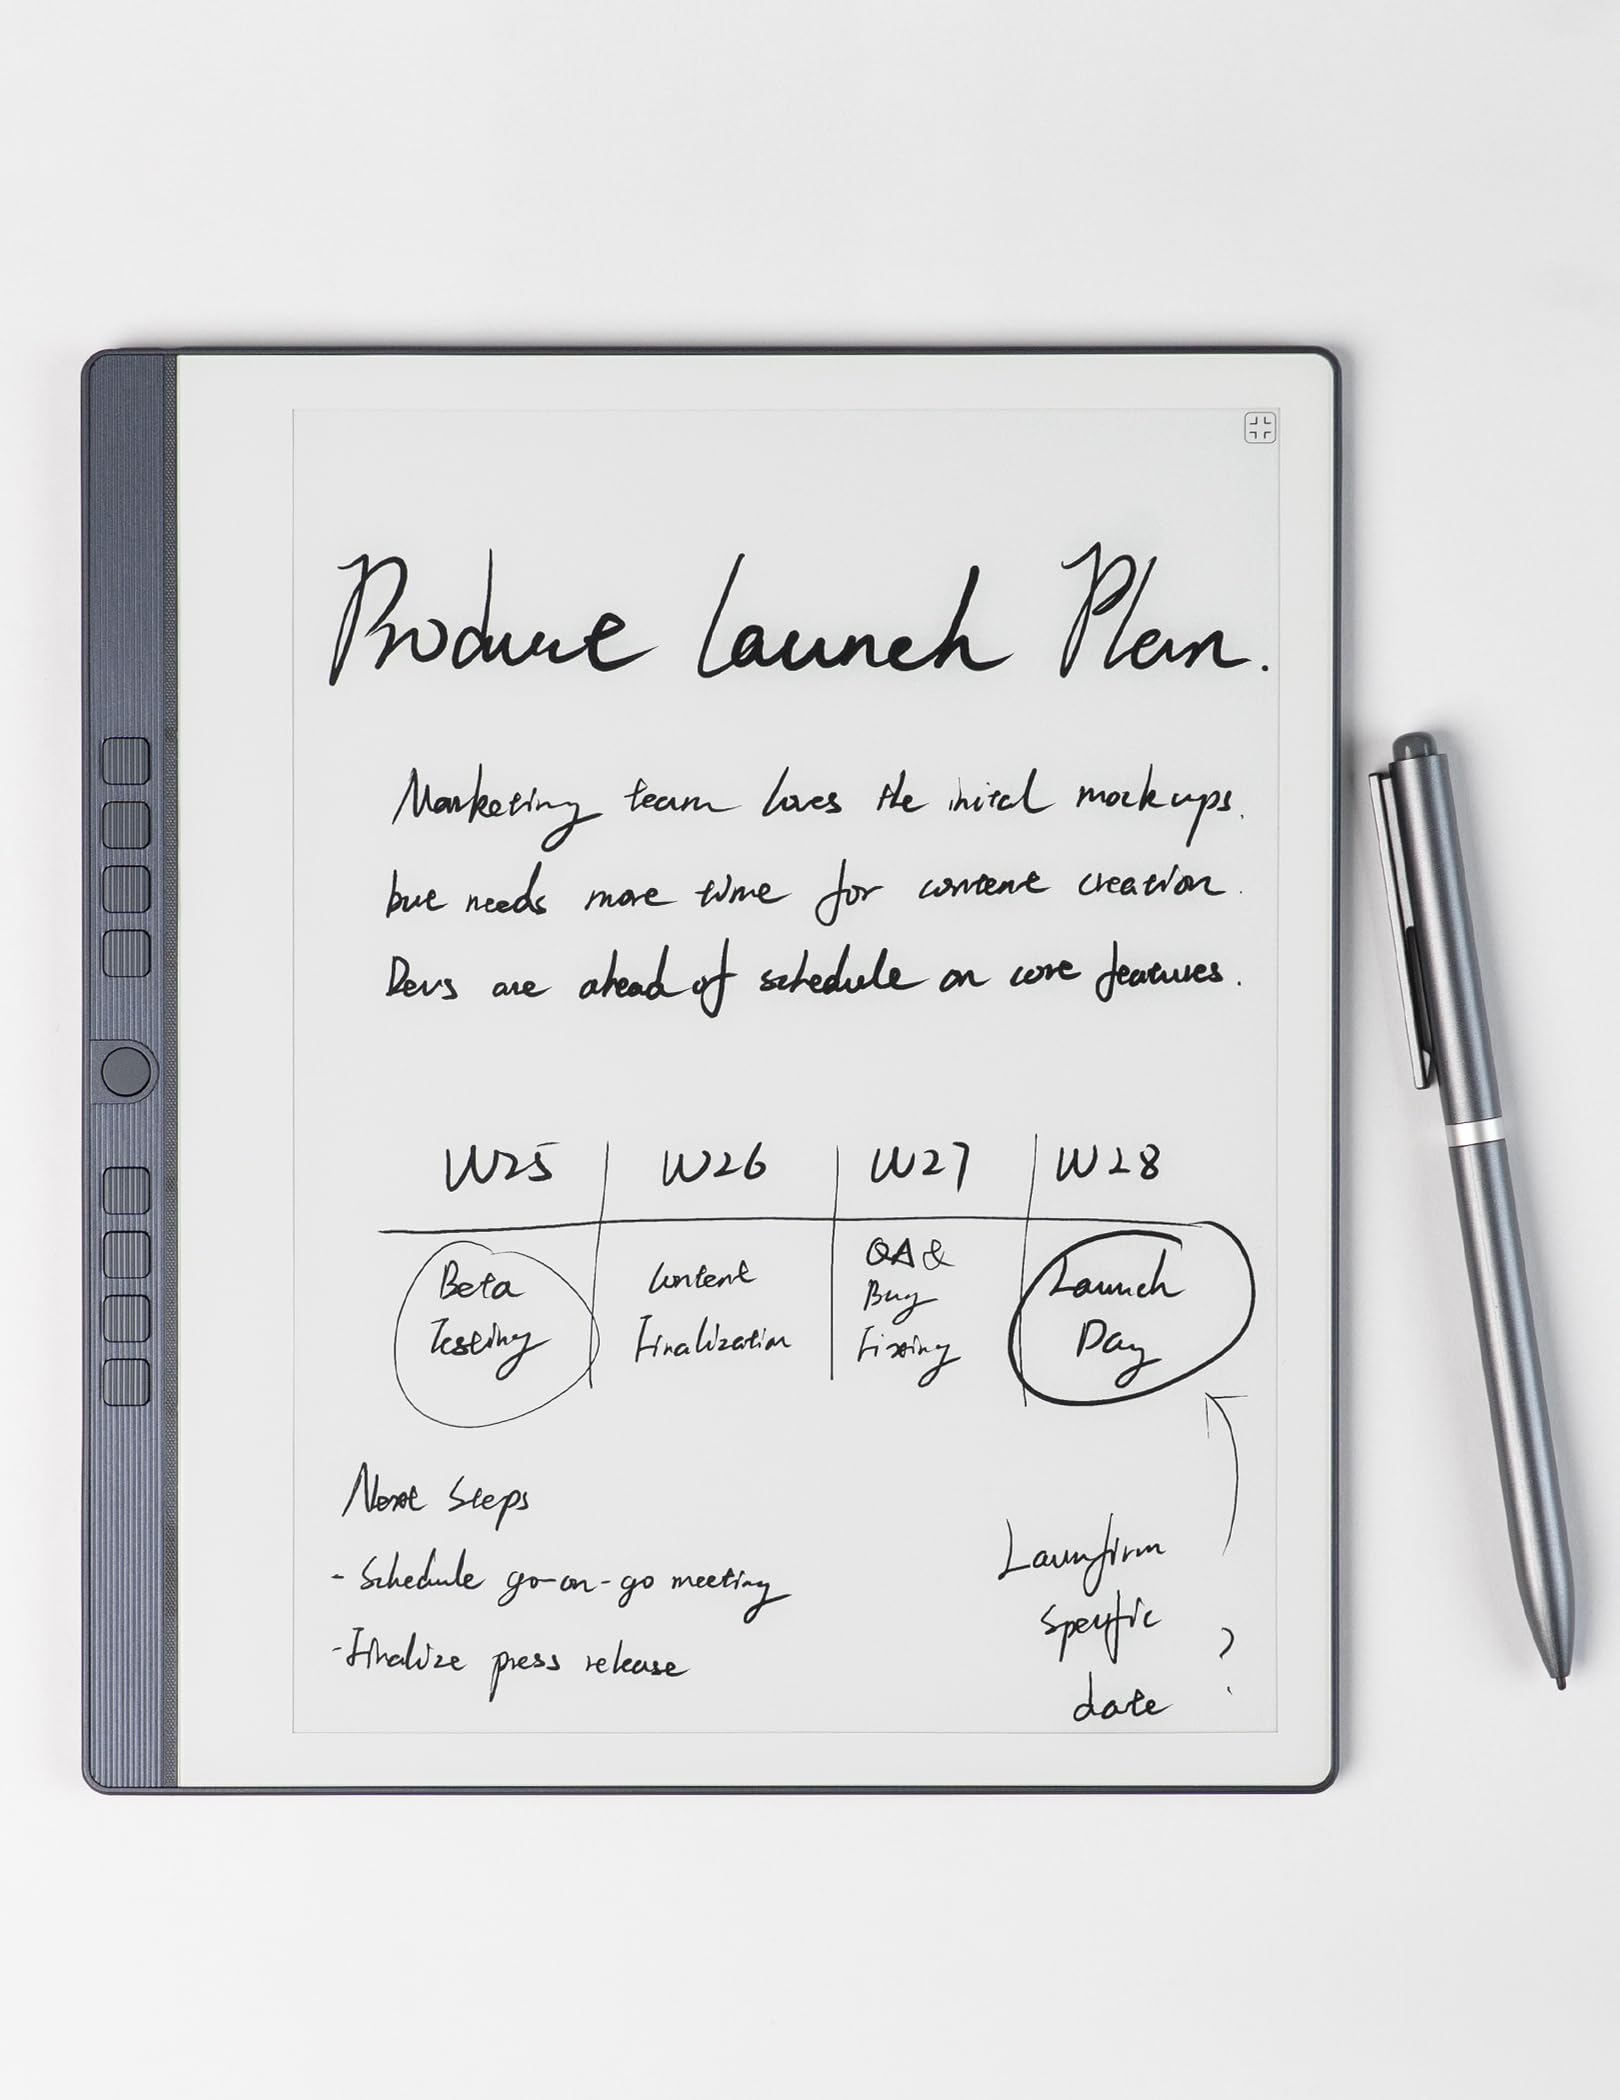 Product Launch Plan.
Marketing team loves the initial mockups.
but needs more time for content creation.
Devs are ahead of schedule on core features.
W25 W26 W27 W28
Beta Content QA & Launch
Testing Finalization Bug Day
Fixing
Next Steps
- Schedule go-on-go meeting
- Finalize press release
specific
date ?